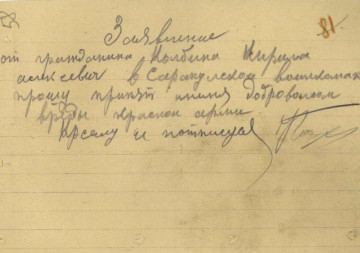 81.
Заявление
от гражданина Колбина Кирила
алексевич в Сарапулской воинкомат
прошу принят миня доброволцом
вряды красной армии